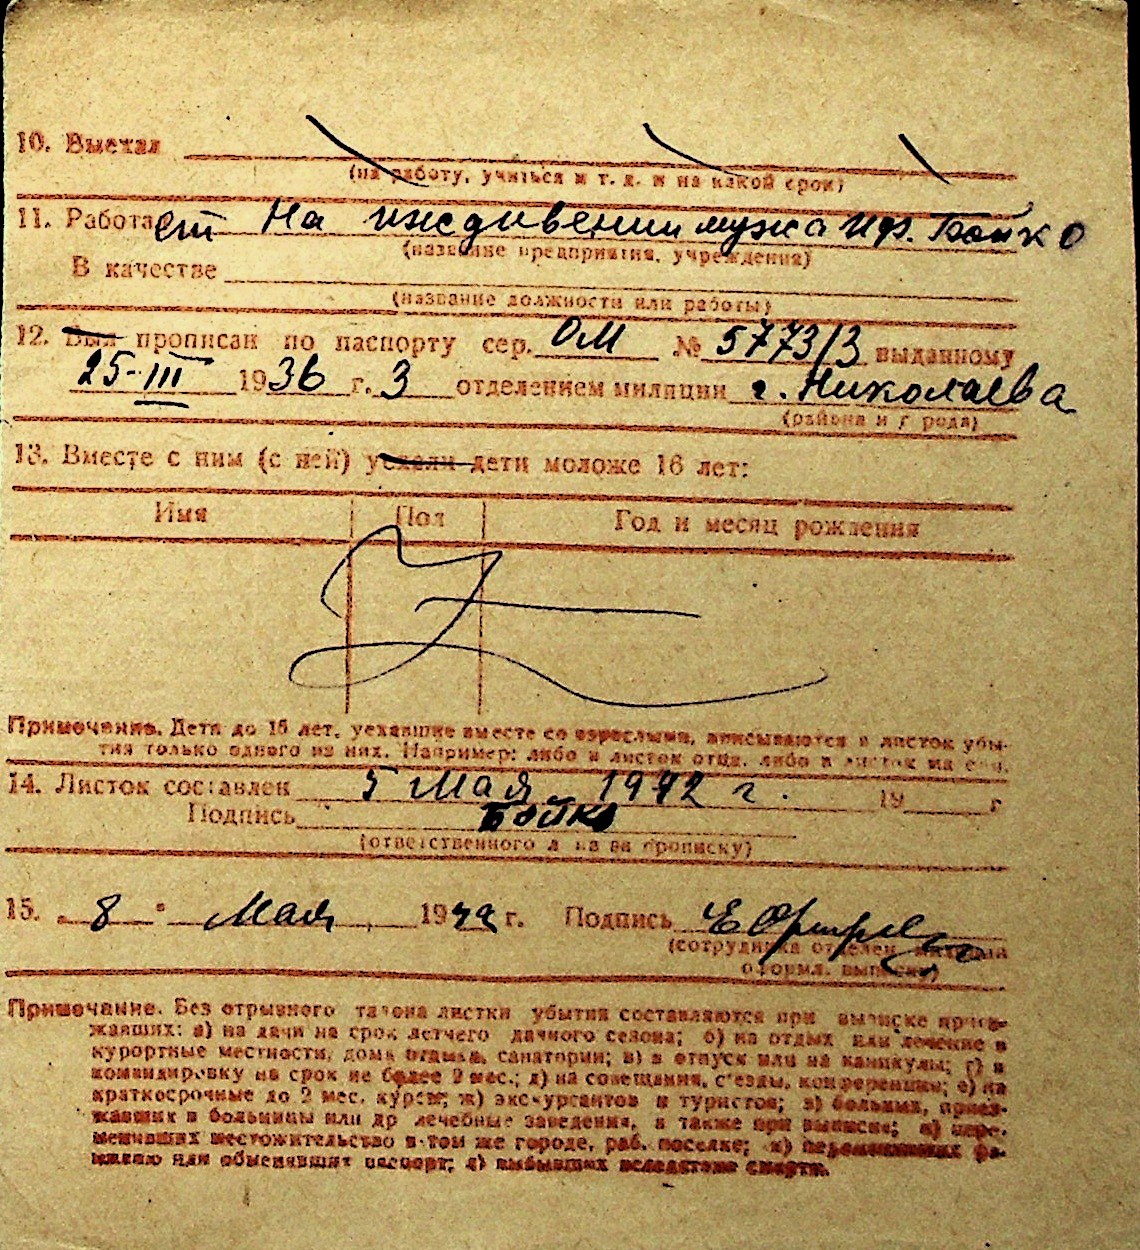 10. Выехал
(на работу, учиться и т. д. и на какой срок)
11. Работает На иждивении мужа Иф. Бойко
(название предприятия, учреждения)
В качестве
(название должности или работы)
12. Был прописан по паспорту сер. ОМ № 5773/3 выданному
25-III 1936 г. 3 отделением милиции г. Николаева
(района и города)
13. Вместе с ним (с ней) уехали дети моложе 16 лет:
Имя Пол Год и месяц рождения
Примечание. Дети до 16 лет, уехавшие вместе со взрослыми, вписываются в листок убы-
тия только одного из них. Например: либо в листок отца, либо в листок матери.
14. Листок составлен 5 Мая 1942 г. 19 г
Подпись Бойко
(ответственного лица за прописку)
15. „ 8 " Мая 1942 г. Подпись
(сотрудника отделен. милиции
оформл. выписку)
Примечание. Без отрывного талона листки убытия составляются при выписке приез-
жавших: а) на дачи на срок летнего дачного сезона; б) на отдых или лечение в
курортные местности, дома отдыха, санатории; в) в отпуск или на каникулы; г) в
командировку на срок не более 2 мес.; д) на совещания, с'езды, конференции; е) на
краткосрочные до 2 мес. курсы; ж) экскурсантов и туристов; з) больных, приез-
жавших в больницы или др лечебные заведения, а также при выписке; и) пере-
менивших местожительство в том же городе, раб. поселке; к) переменивших фа-
милию или обменявших паспорт; л) выбывших вследствие смерти.